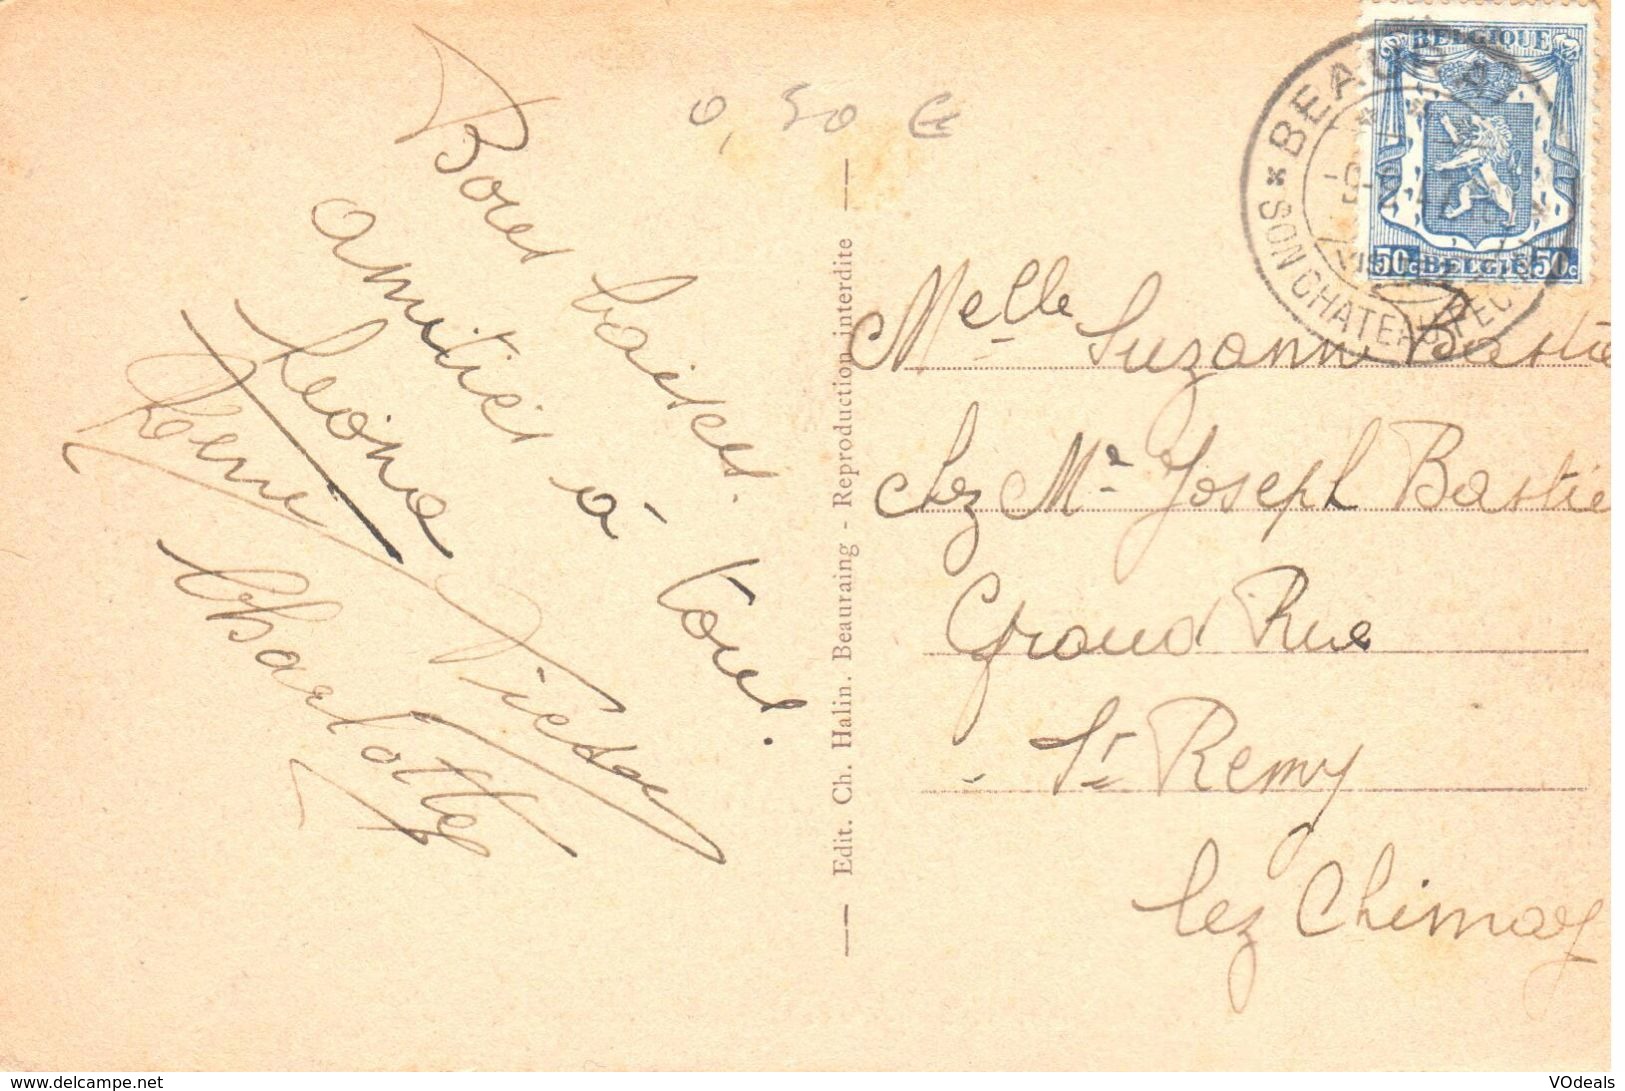 0,50 €
Bons baisers.
amitiés à tous.
Léona
Victor
Charlotte
— Edit. Ch. Halin. Beauraing - Reproduction interdite —
BELGIQUE
50c BELGIË 50c
SON CHATEAU
Melle Suzann Bastie
chez Mr Joseph Bastie
Grand Rue
St Remy
lez Chimay
www.delcampe.net
VOdeals